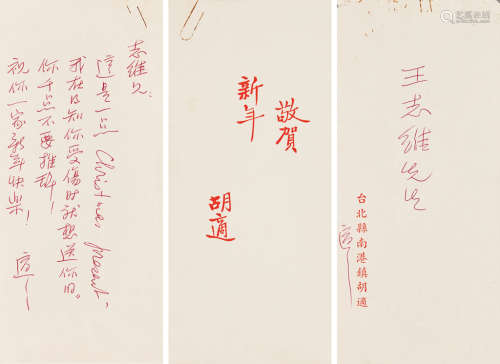 志維兄:
這是一点 Christmas present,
我在知你受傷時就想送你的。
你千不要推辭!
祝你一家新年快樂!
適
敬賀
新年
胡適
王志維先生
台北縣南港鎮胡適
適